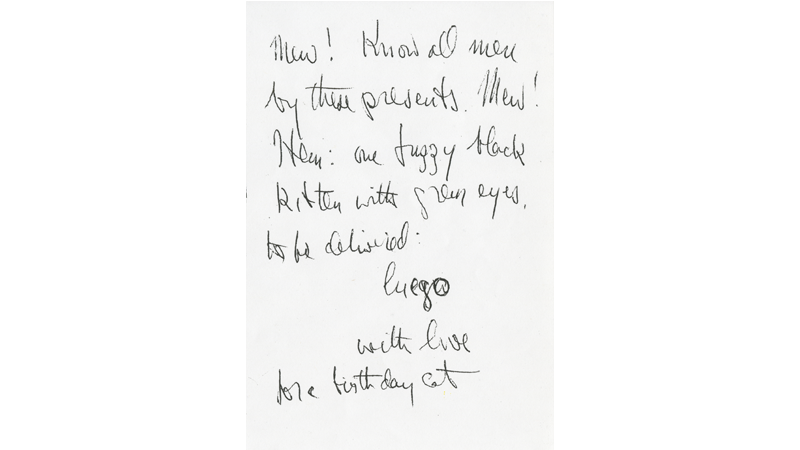 Mew! Know all men
by these presents. Mew!
Item: one fuzzy black
kitten with green eyes,
to be delivered:
luego
with love
for a birthday cat